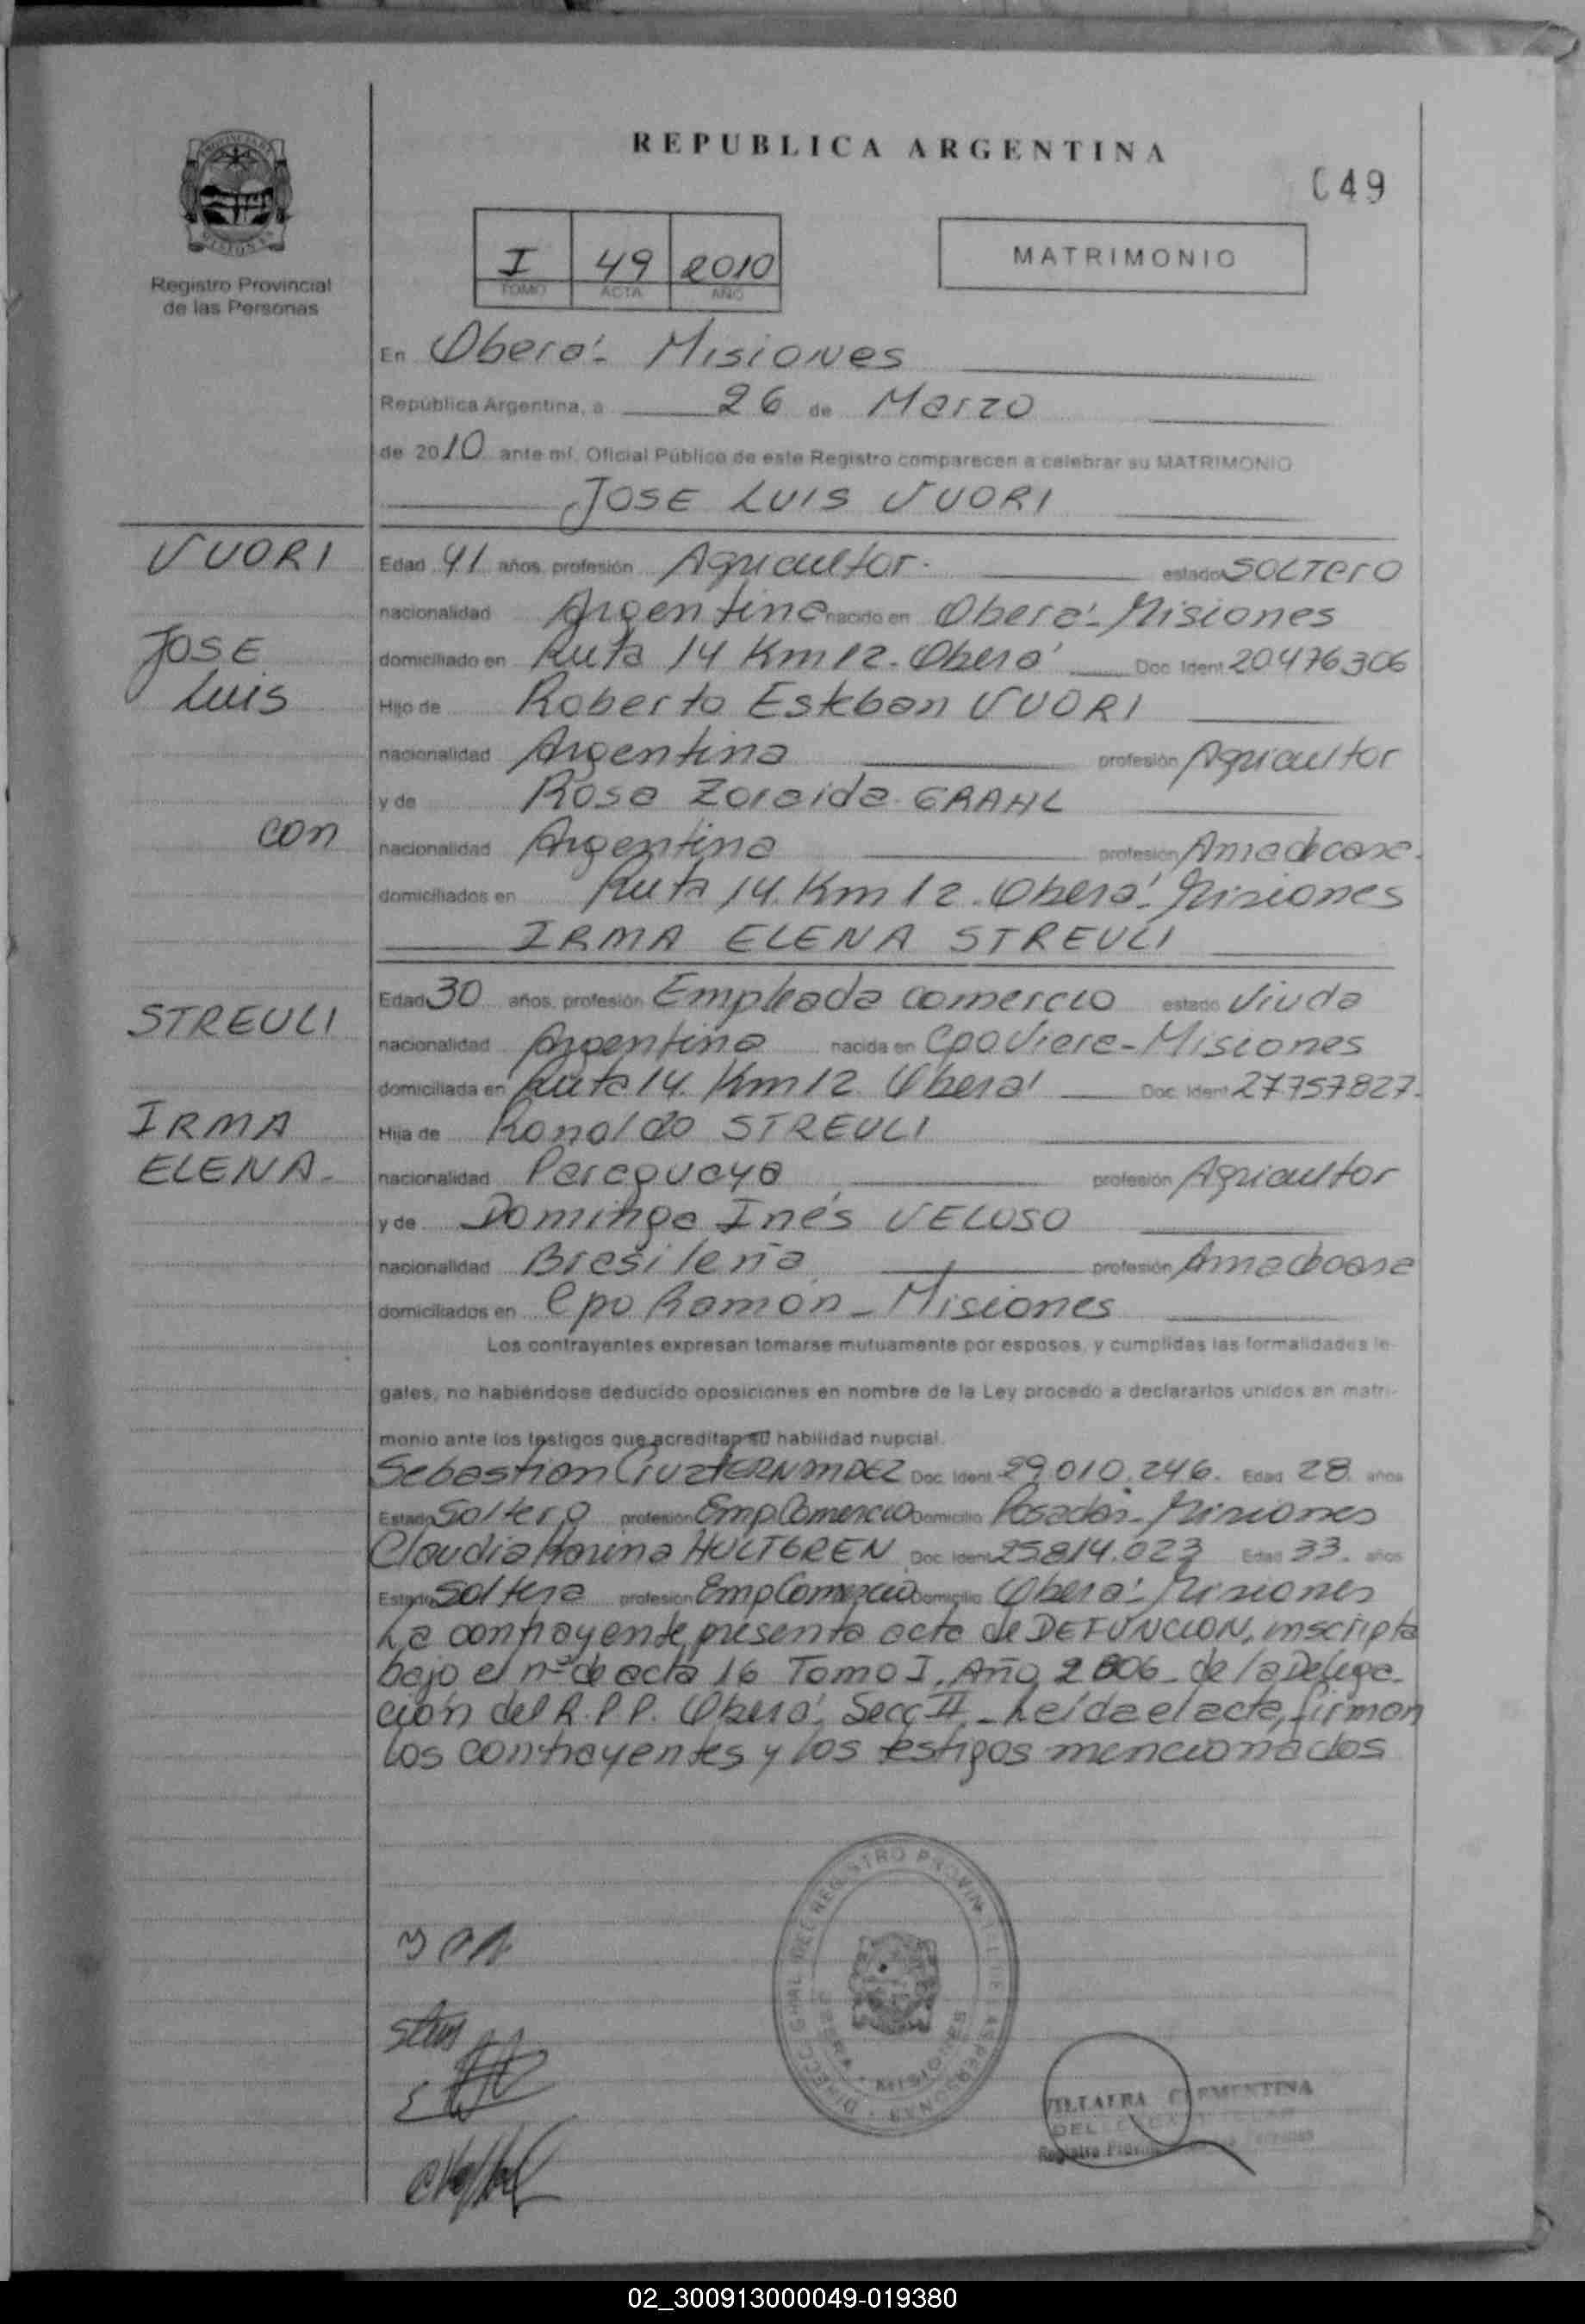 REPUBLICA ARGENTINA
049
PROVINCIA DE
MISIONES
Registro Provincial
de las Personas
I 49 2010
TOMO ACTA AÑO
MATRIMONIO
En Oberá - Misiones
República Argentina, a 26 de Marzo
de 2010 ante mí, Oficial Público de este Registro comparecen a celebrar su MATRIMONIO
JOSE LUIS VUORI
VUORI
Edad 41 años, profesión Agricultor. estado SOLTERO
nacionalidad Argentina nacido en Oberá - Misiones
JOSE
Luis
domiciliado en Ruta 14 Km 12. Oberá Doc. Ident. 20.476306
Hijo de Roberto Esteban VUORI
nacionalidad Argentina profesión Agricultor
y de Rosa Zoraida GRAHL
con
nacionalidad Argentina profesión Ama de casa.
domiciliados en Ruta 14. Km 12. Oberá - Misiones
IRMA ELENA STREULI
STREULI
Edad 30 años, profesión Empleada comercio estado Viuda
nacionalidad Argentina nacida en Cpo Viera - Misiones
domiciliada en Ruta 14. Km 12. Oberá Doc. Ident. 27757827.
IRMA
ELENA.
Hija de Ronaldo STREULI
nacionalidad Paraguaya profesión Agricultor
y de Dominga Inés VELOSO
nacionalidad Brasileña profesión Ama de casa
domiciliados en Cpo Ramón - Misiones
Los contrayentes expresan tomarse mutuamente por esposos, y cumplidas las formalidades le-
gales, no habiéndose deducido oposiciones en nombre de la Ley procedo a declararlos unidos en matri-
monio ante los testigos que acreditan su habilidad nupcial.
Sebastian Cruz FERNANDEZ Doc. Ident. 29.010.246. Edad 28. años
Estado Soltero profesión Emp Comercio Domicilio Posadas - Misiones
Claudia Marina HULTGREN Doc. Ident. 25814.023 Edad 33. años
Estado Soltera profesión Emp Comercio Domicilio Oberá - Misiones
La contrayente, presenta acta de DEFUNCION, inscripta
bajo el nº de acta 16 Tomo I. Año 2006 - de la Delega-
ción del R.P.P. Oberá, Secc II - Leída el acta, firman
los contrayentes y los testigos mencionados
MISIONES
VILLALBA CLEMENTINA
02_300913000049-019380